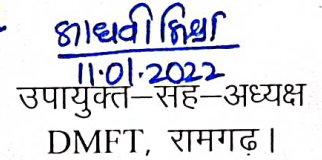 माधवी मिश्रा
11.01.2022
उपायुक्त-सह-अध्यक्ष
DMFT, रामगढ़।